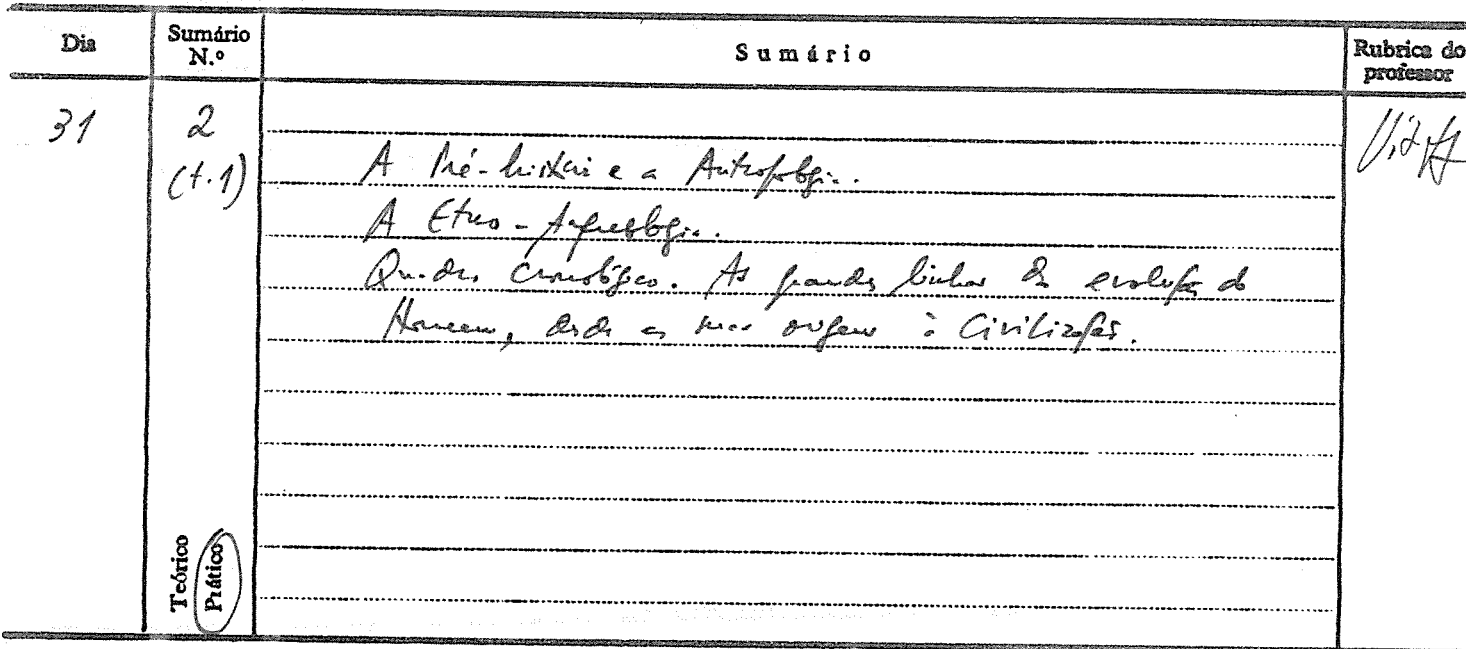 Dia
Sumário N.º
Sumário
Rubrica do professor
31
2
(t.1)
A Pré-história e a Antropologia.
A Etno-Arqueologia.
Quadro cronológico. As grandes linhas da evolução do
Homem, desde as suas origens à Civilização.
Teórico
Prático